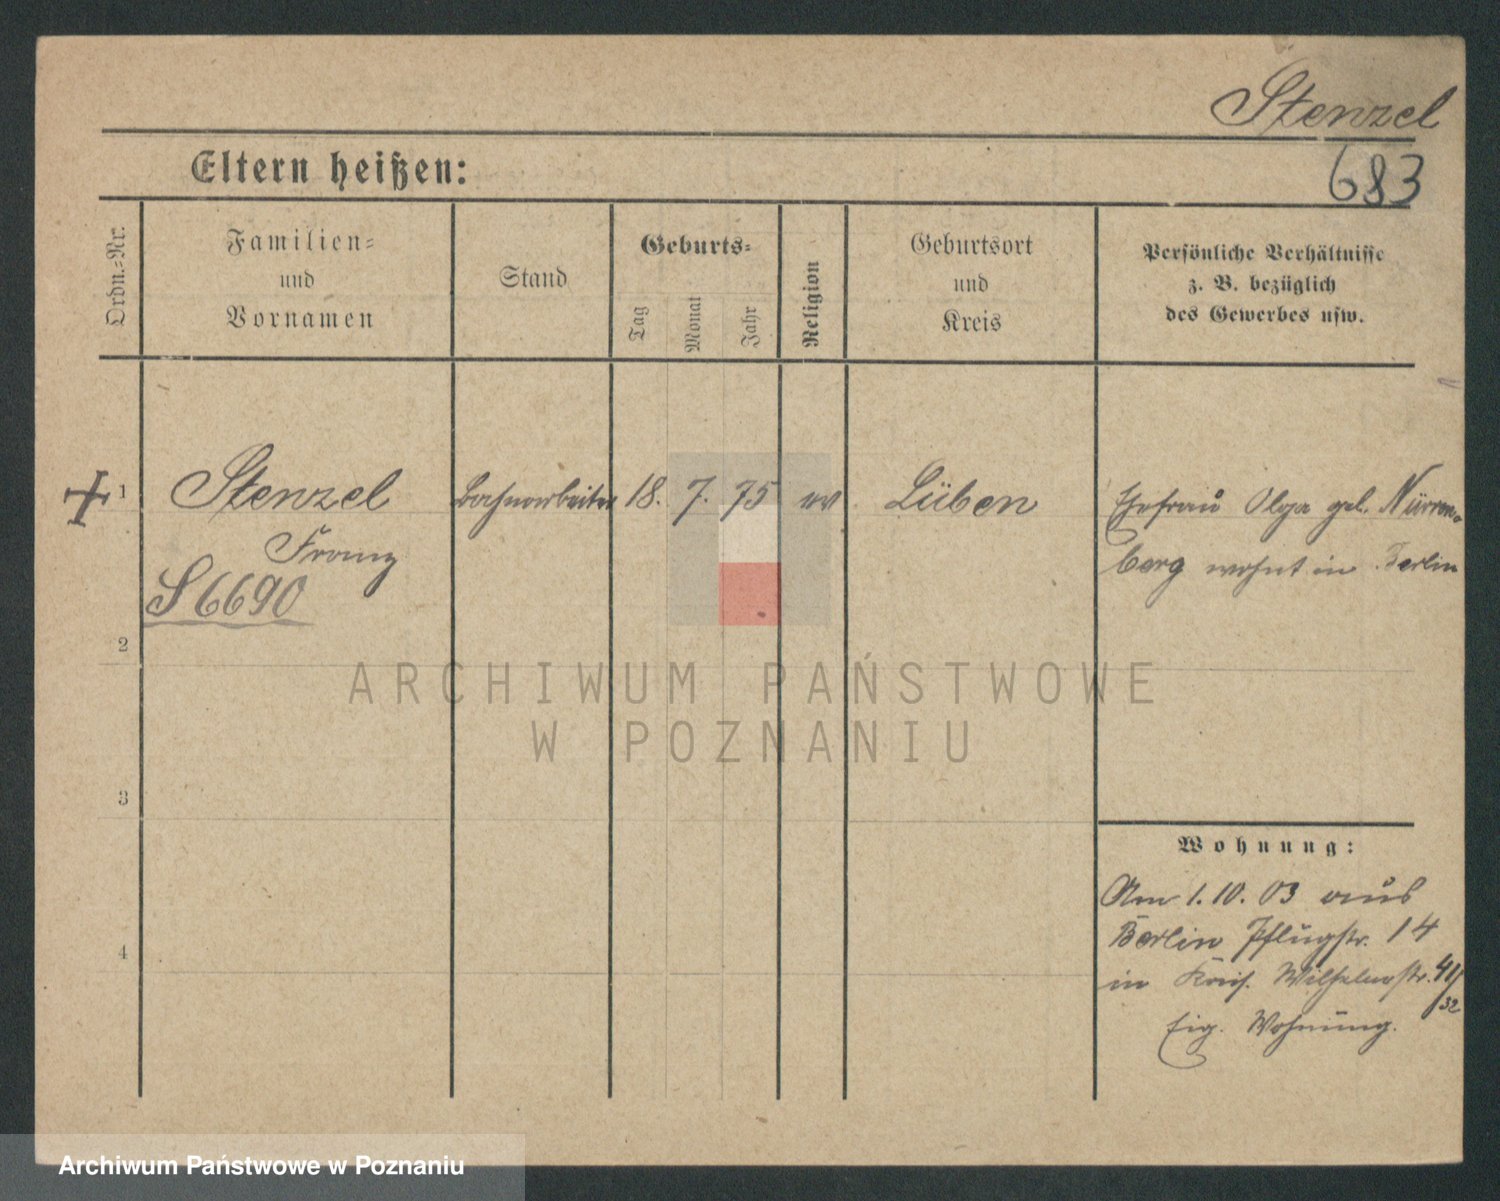 Stenzel
683
Eltern heißen:
Ordn.-Nr.
Familien-
und
Vornamen
Stand
Geburts-
Tag
Monat
Jahr
Religion
Geburtsort
und
Kreis
Persönliche Verhältnisse
z. B. bezüglich
des Gewerbes usw.
1
Stenzel
Franz
S 6690
Bahnarbeiter
18. 7. 75
ev
Lüben
Ehefrau Olga geb. Nürren-
berg wohnt in Berlin
2
3
4
Wohnung:
Am 1. 10. 03 aus
Berlin Pflugstr. 14
in Wilhelmstr. 41/
32
Eig. Wohnung.
ARCHIWUM PAŃSTWOWE
W POZNANIU
Archiwum Państwowe w Poznaniu